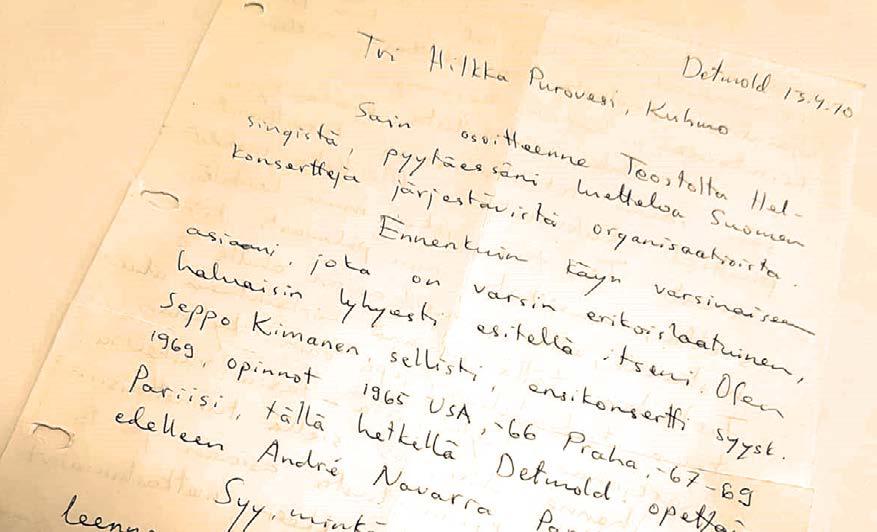 Detmold 13.4.70
Tri Hilkka Purovesi, Kuhmo
Sain osoitteenne Teostolta Hel-
singistä, pyytäessäni luetteloa Suomen
konsertteja järjestävistä organisaatioista.
Ennenkuin käyn varsinaiseen
asiaani, joka on varsin erikoislaatuinen,
haluaisin lyhyesti esitellä itseni. Olen
Seppo Kimanen, sellisti, ensikonsertti syysk.
1969, opinnot 1965 USA, -66 Praha, -67-69
Pariisi, tällä hetkellä Detmold, opettaja
edelleen André Navarra
Syy, minkä